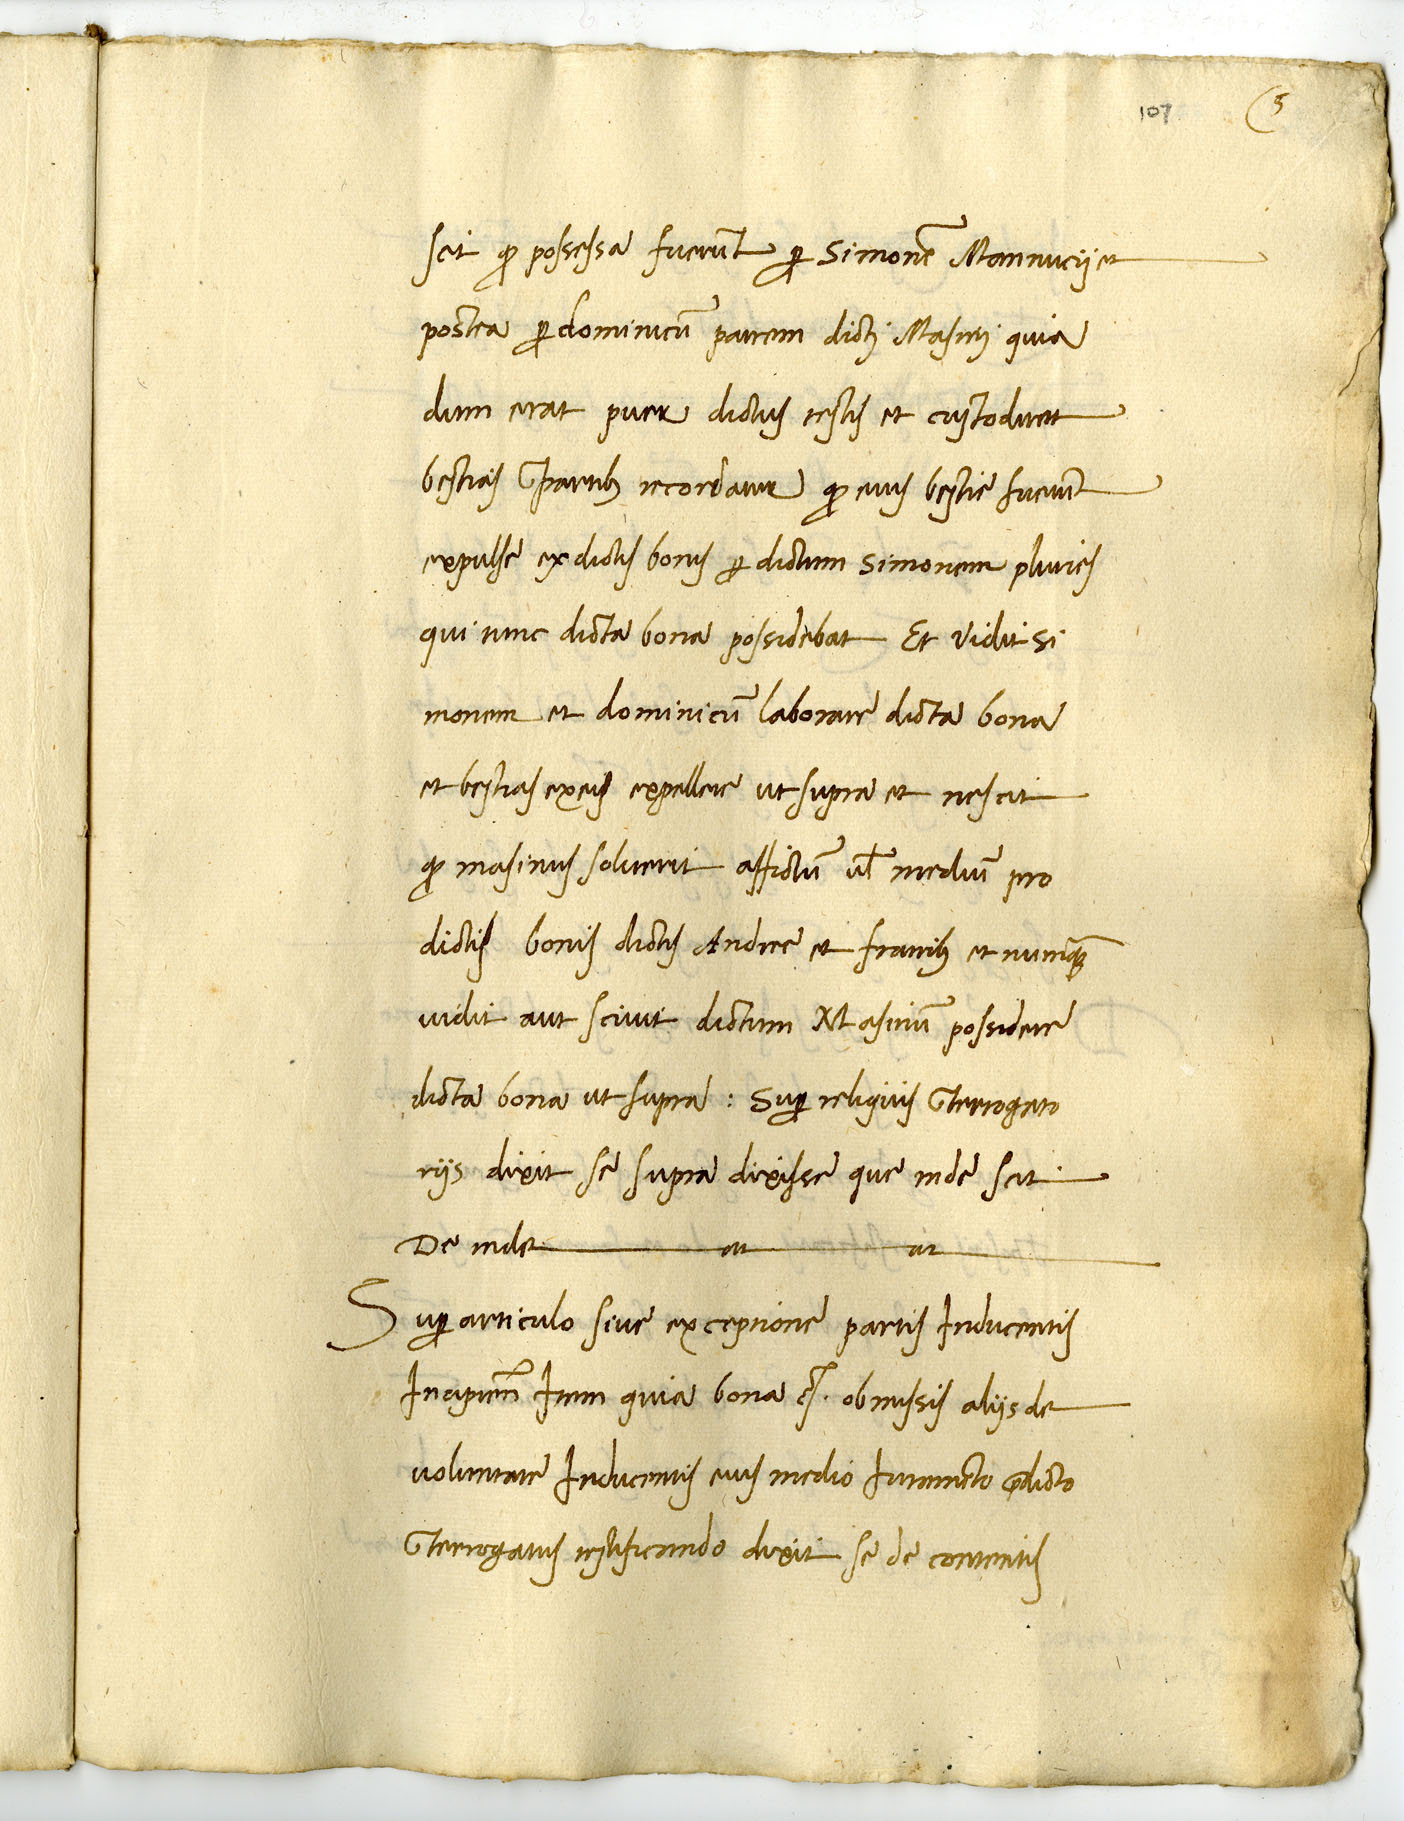 107 (5
scit qp possessa fuerūt p Simonē Mannucij et
postea p dominicū patrem dictj Masinj quia
dum erat puer dictus testis et custodiret
bestias partibȝ recordatur qp eius bestie fuerūt
expulse ex dictis bonis p dictum Simonem pluries
qui tunc dicta bona possidebat Et vidit Si
monem et dominicū laborare dicta bona
et bestias ex eis expellere ut supra et nescit
qp masinus soluerit affictū ul medium pro
dictis bonis dictis Andree et fratribȝ et nunqȝ
uidit aut sciuit dictum Masinū possidere
dicta bona ut supra : Sup reliquis Īterrogato
rijs dixit se supra dixisse que inde scit
De inde at at
Sup articulo siue exceptione partis Inducentis
Incipient̄ Item quia bona &̄. obmissis alijs de
voluntate Inducentis eius medio Iuramēto p̄dicto
Īterrogatus testificando dixit se de contentis